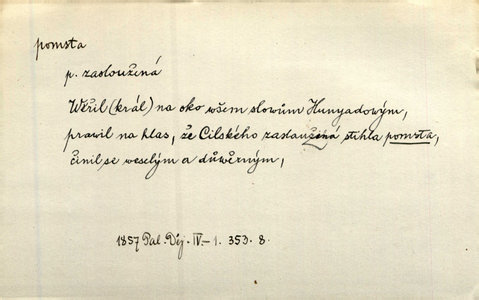 pomsta
p. zasloužená
Wěřil (král) na oko wšem slowům Hunyadowým,
prawil na hlas, že Cilského zasloužená stihla pomsta,
činil se weselým a důwěrným,
1857 Pal. Děj. IV.–1. 353. 8.